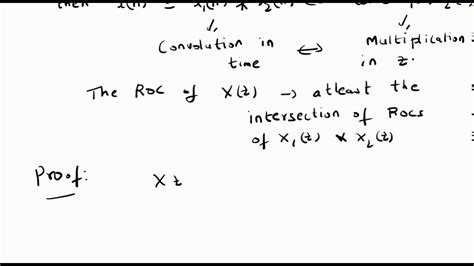 then x(n) = x₁(n) * x₂(n)
Convolution in ⟷ Multiplication
time in z.
The ROC of X(z) → atleast the
intersection of ROCs
of X₁(z) & X₂(z)
Proof: X z